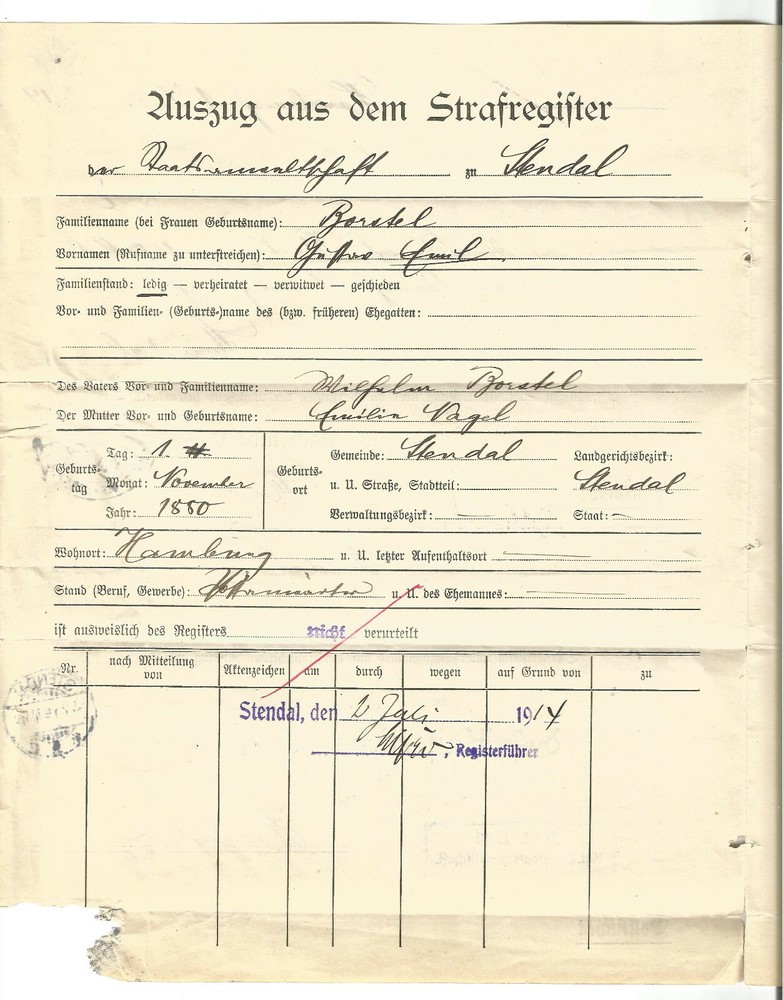 Auszug aus dem Strafregister
der Staatsanwaltschaft zu Stendal
Familienname (bei Frauen Geburtsname): Borstel
Vornamen (Rufname zu unterstreichen): Gustav Emil
Familienstand: ledig — verheiratet — verwitwet — geschieden
Vor- und Familien- (Geburts-)name des (bzw. früheren) Ehegatten:
Des Vaters Vor- und Familienname: Wilhelm Borstel
Der Mutter Vor- und Geburtsname: Emilie Nagel
Geburtstag
Tag: 1.
Monat: November
Jahr: 1880
Geburtsort
Gemeinde: Stendal
u. U. Straße, Stadtteil:
Verwaltungsbezirk: —
Landgerichtsbezirk:
Stendal
Staat: —
Wohnort: Hamburg u. U. letzter Aufenthaltsort —
Stand (Beruf, Gewerbe): u. U. des Ehemannes: —
ist ausweislich des Registers nicht verurteilt
Nr. nach Mitteilung von Aktenzeichen am durch wegen auf Grund von zu
Stendal, den 2 Juli 1914
, Registerführer